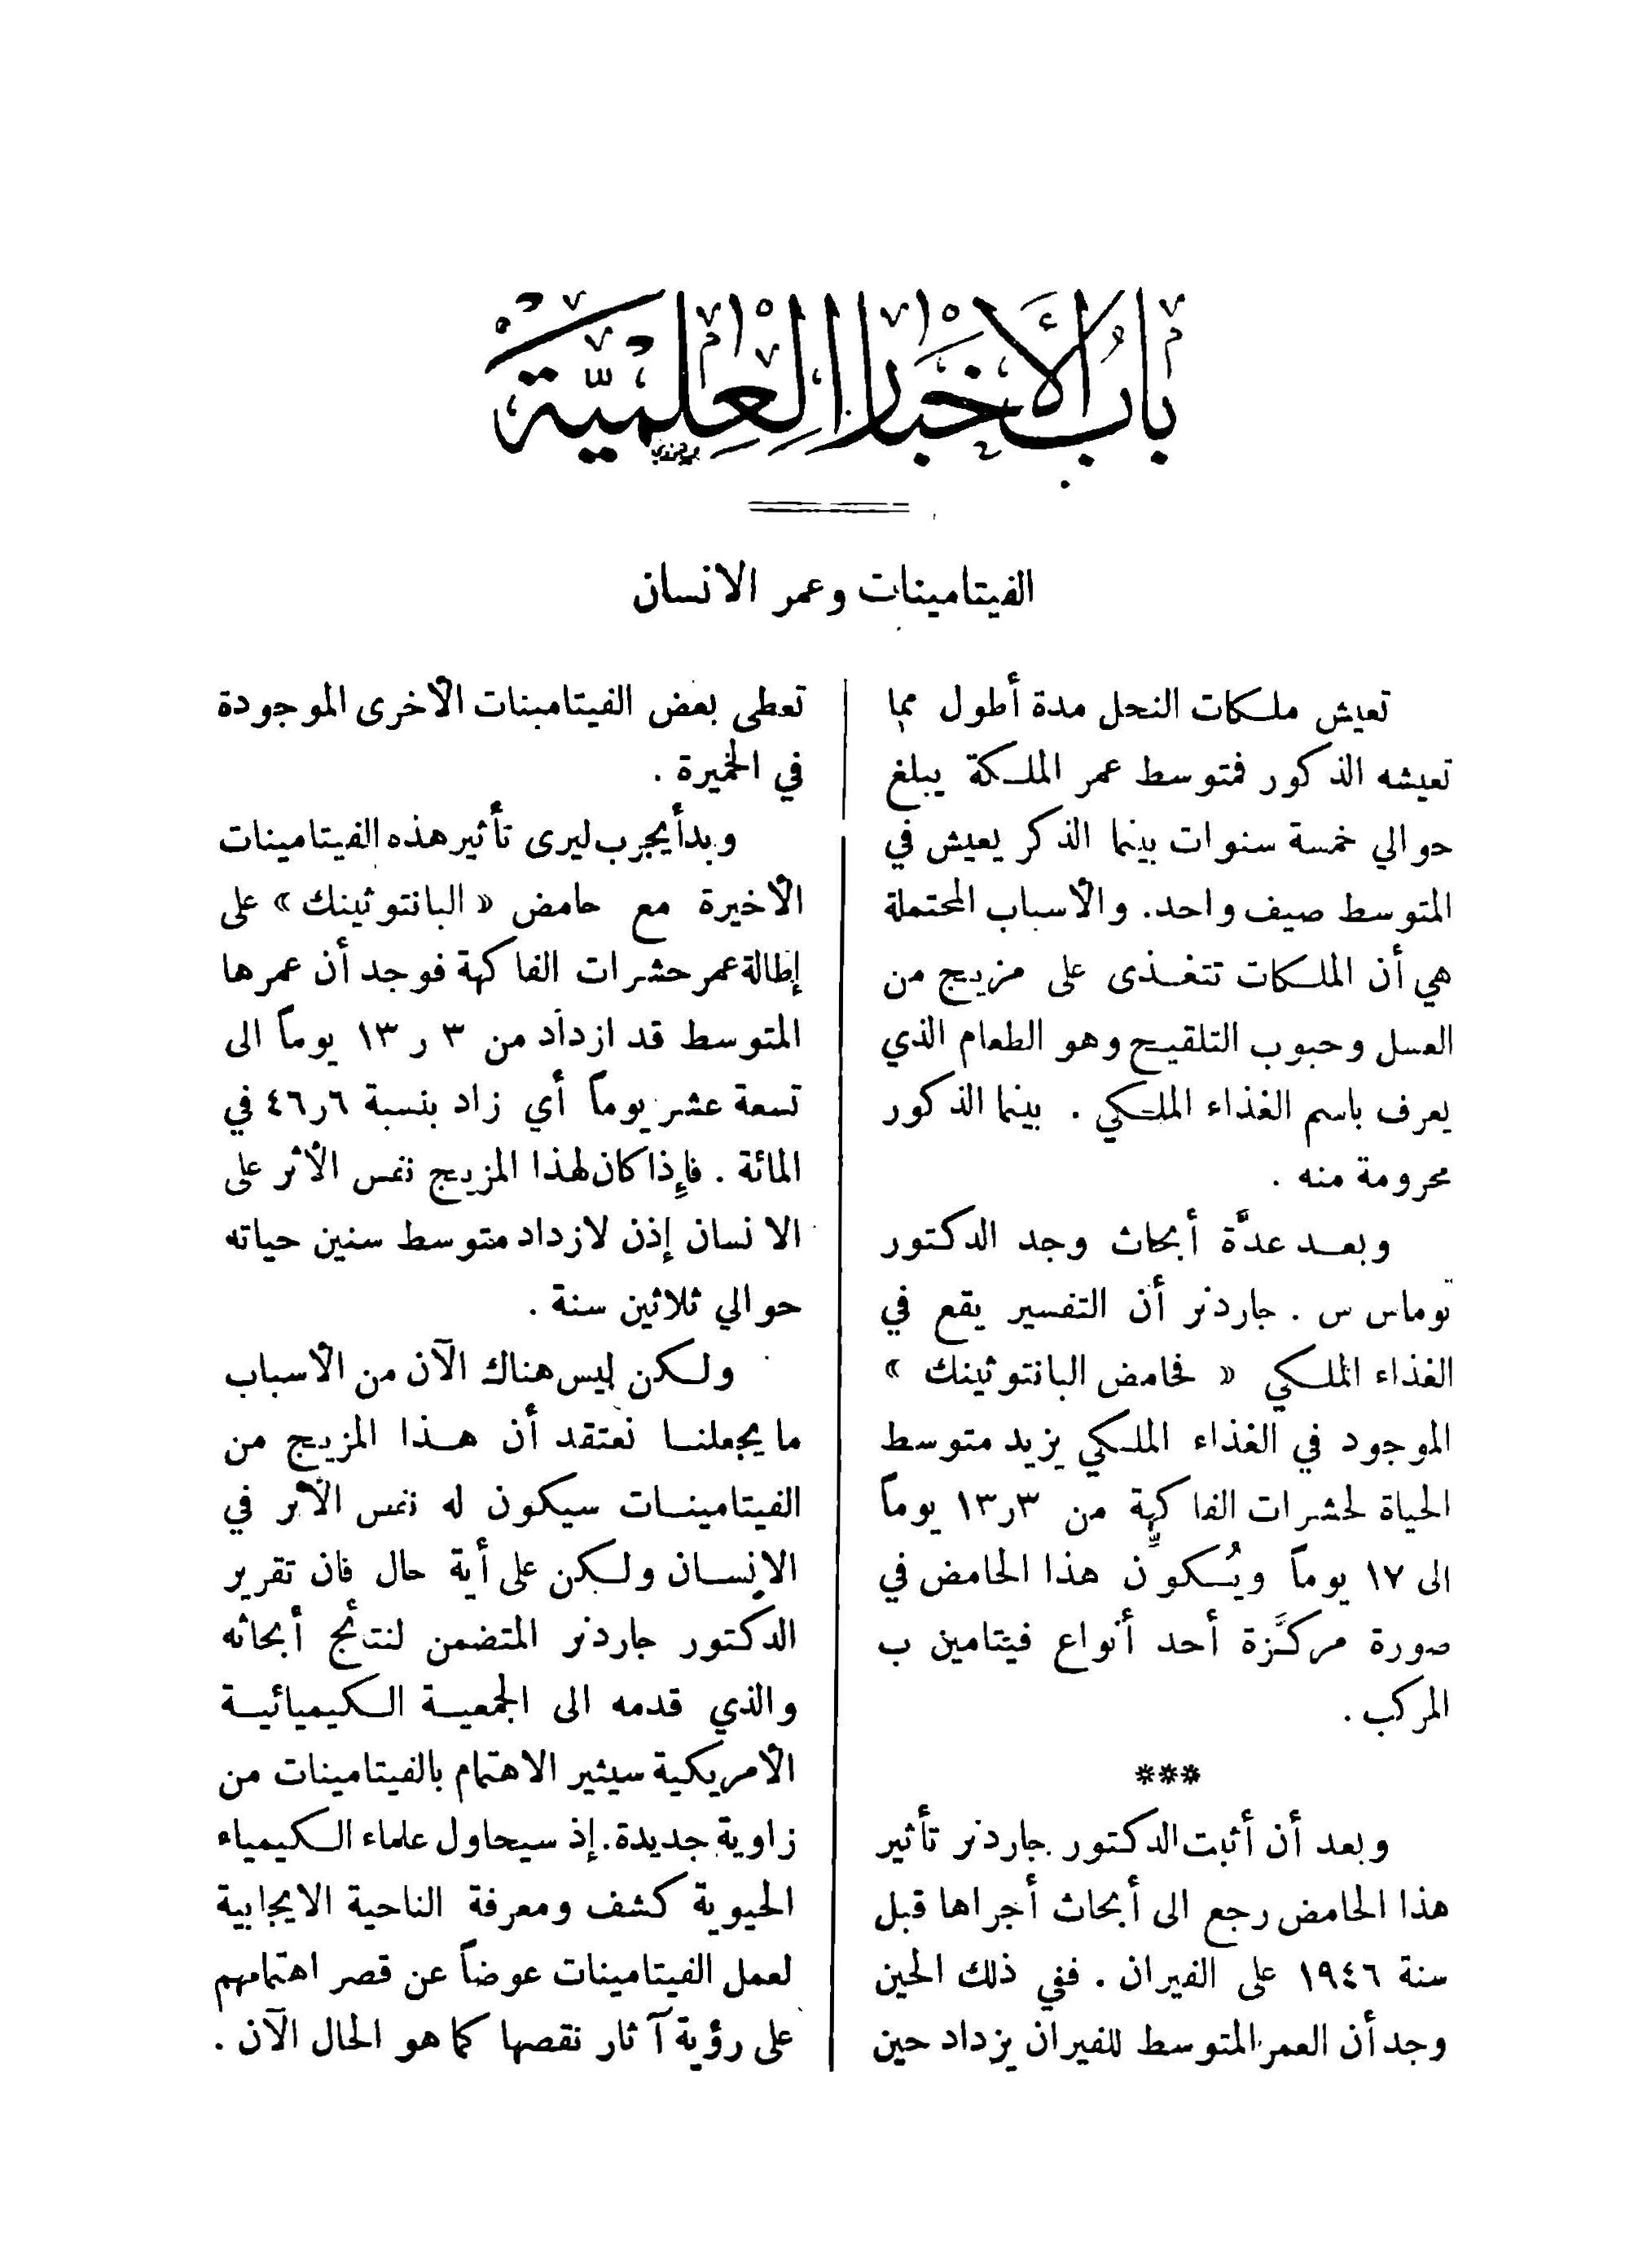 باب الأخبار العلمية
الفيتامينات وعمر الانسان
تعيش ملكات النحل مدة أطول مما
تعيشه الذكور فمتوسط عمر الملكة يبلغ
حوالي خمسة سنوات بينما الذكر يعيش في
المتوسط صيف واحد. والأسباب المحتملة
هي أن الملكات تتغذى على مزيج من
العسل وحبوب التلقيح وهو الطعام الذي
يعرف باسم الغذاء الملكي . بينما الذكور
محرومة منه .
وبعد عدَّة أبحاث وجد الدكتور
توماس س . جاردنر أن التفسير يقع في
الغذاء الملكي « فحامض البانتوثينك »
الموجود في الغذاء الملكي يزيد متوسط
الحياة لحشرات الفاكهة من ٣ر١٣ يوماً
الى ١٧ يوماً ويُكوِّن هذا الحامض في
صورة مركَّزة أحد أنواع فيتامين ب
المركب .
***
وبعد أن أثبت الدكتور جاردنر تأثير
هذا الحامض رجع الى أبحاث أجراها قبل
سنة ١٩٤٦ على الفيران . ففي ذلك الحين
وجد أن العمر المتوسط للفيران يزداد حين
تعطى بعض الفيتامينات الأخرى الموجودة
في الخميرة .
وبدأ يجرب ليرى تأثير هذه الفيتامينات
الأخيرة مع حامض « البانتوثينك » على
إطالة عمر حشرات الفاكهة فوجد أن عمرها
المتوسط قد ازداد من ٣ ر ١٣ يوماً الى
تسعة عشر يوماً أي زاد بنسبة ٦ر٤٦ في
المائة . فإذا كان لهذا المزيج نفس الأثر على
الانسان إذن لازداد متوسط سنين حياته
حوالي ثلاثين سنة .
ولكن ليس هناك الآن من الأسباب
ما يجعلنا نعتقد أن هذا المزيج من
الفيتامينات سيكون له نفس الأثر في
الانسان ولكن على أية حال فان تقرير
الدكتور جاردنر المتضمن لنتائج أبحاثه
والذي قدمه الى الجمعية الكيميائية
الأمريكية سيثير الاهتمام بالفيتامينات من
زاوية جديدة. إذ سيحاول علماء الكيمياء
الحيوية كشف ومعرفة الناحية الايجابية
لعمل الفيتامينات عوضاً عن قصر اهتمامهم
على رؤية آثار نقصها كما هو الحال الآن .